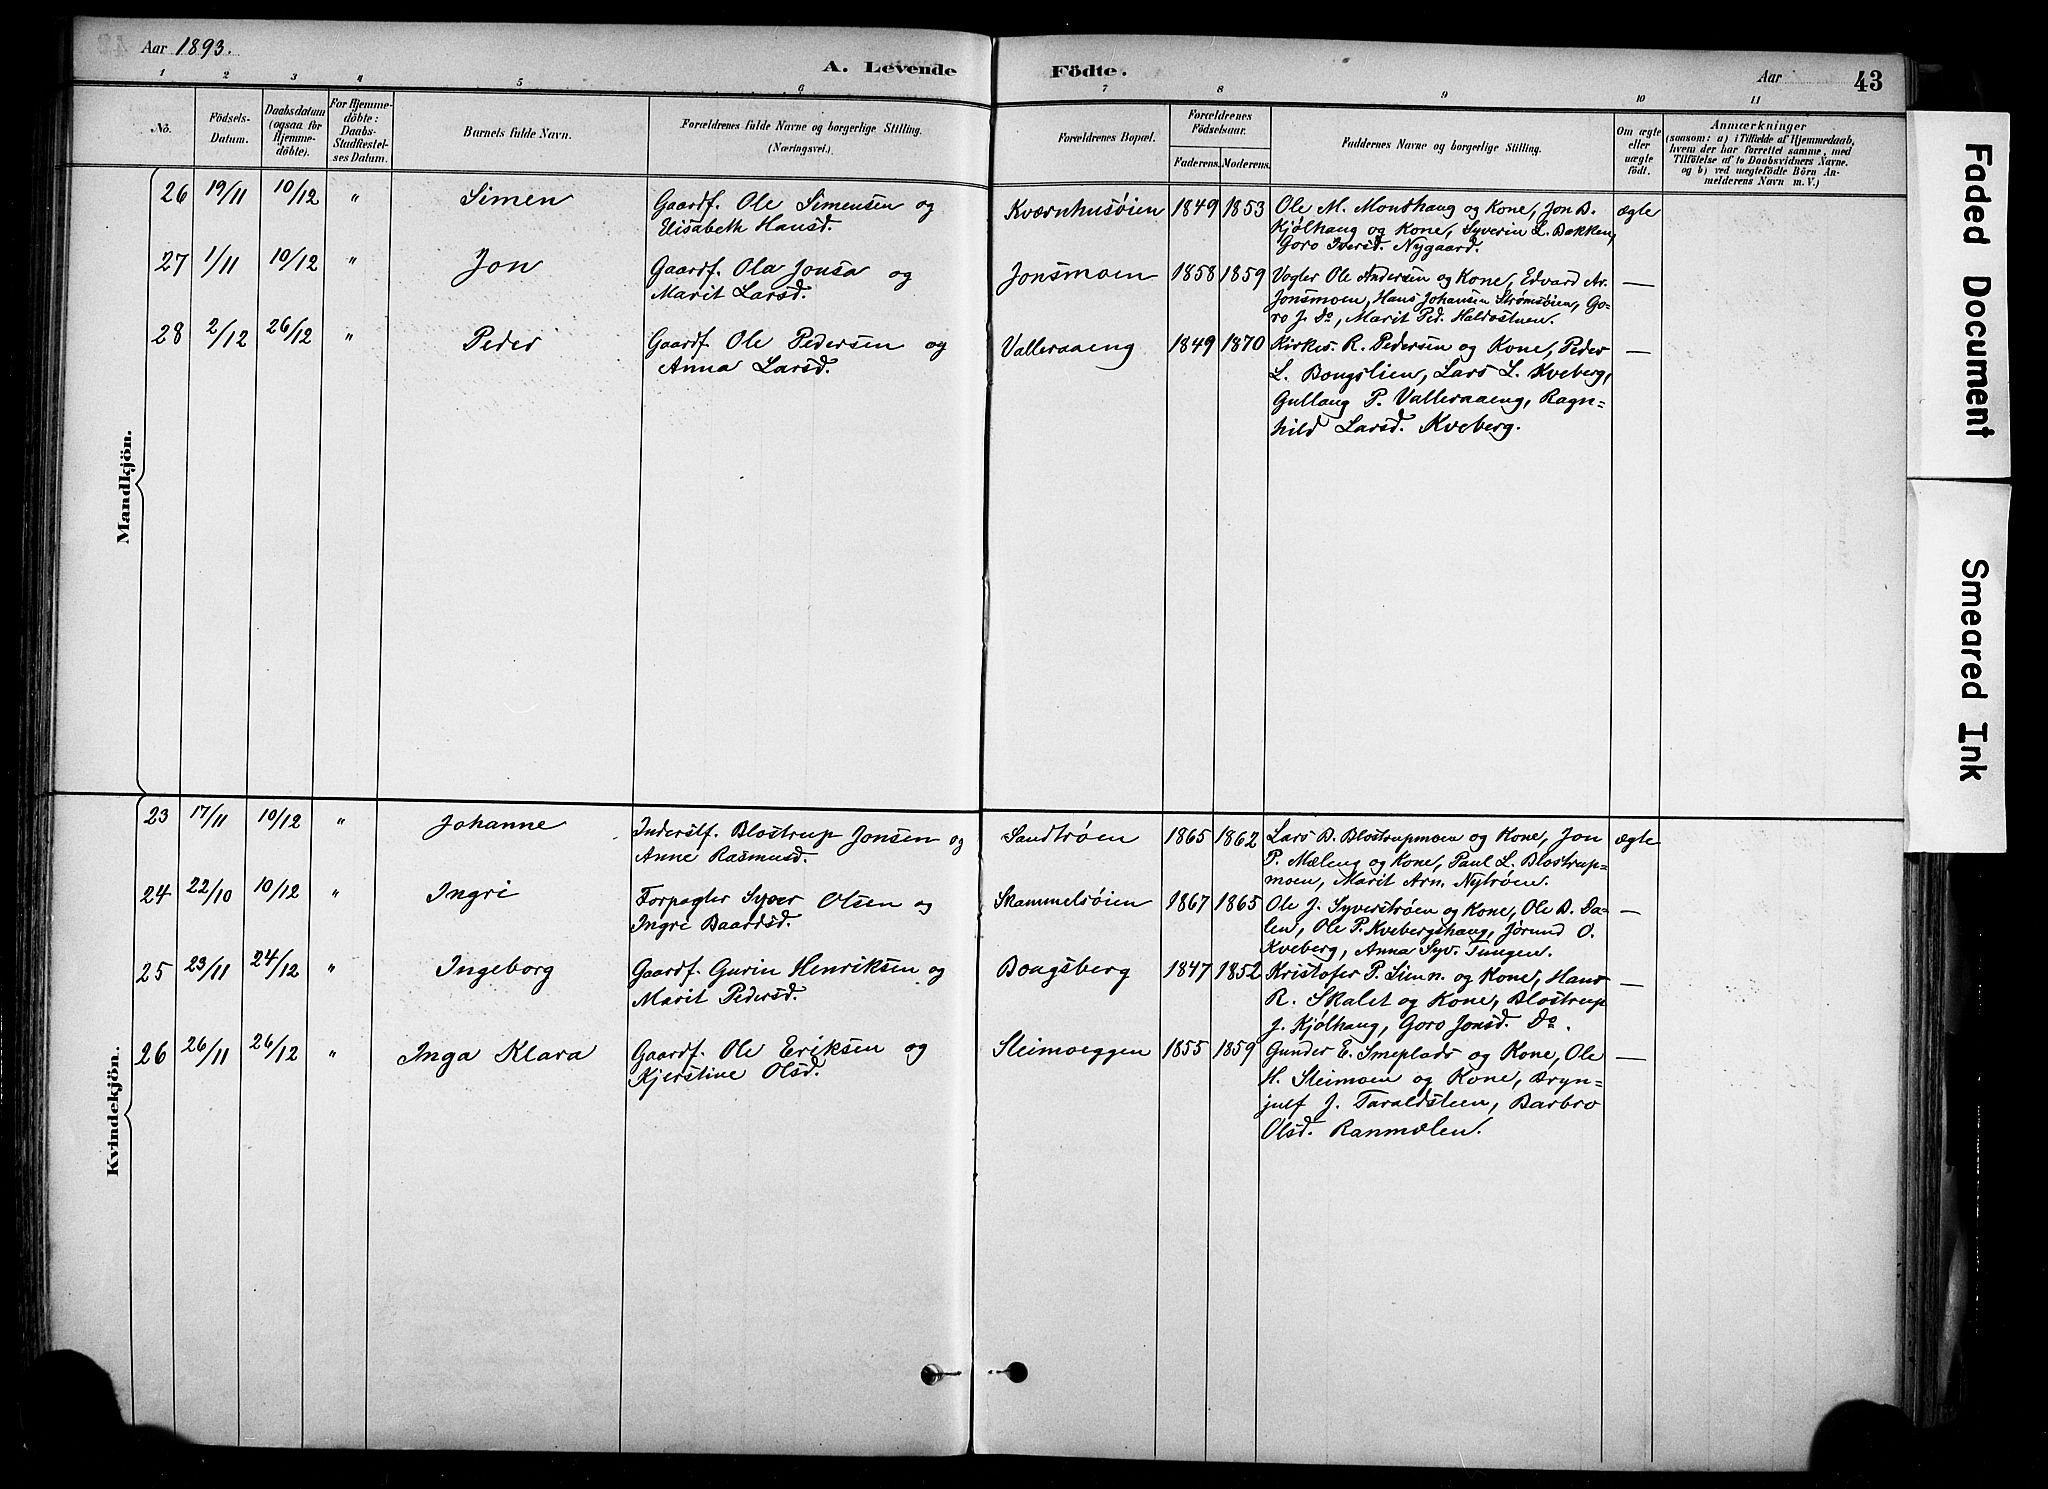 Aar 1893.
A. Levende
Födte.
Aar
43
1
2
3
4
5
6
7
8
9
10
11
No.
Födsels-
Datum.
Daabsdatum
(ogsaa for
Hjemme-
döbte).
For Hjemme-
döbte:
Daabs-
Stadfæstel-
ses Datum.
Barnets fulde Navn.
Forældrenes fulde Navne og borgerlige Stilling.
(Næringsvei.)
Forældrenes Bopæl.
Forældrenes
Födselsaar.
Faderens.
Moderens.
Faddernes Navne og borgerlige Stilling.
Om ægte
eller
uægte
födt.
Anmærkninger
(saasom: a) i Tilfælde af Hjemmedaab,
hvem der har forrettet samme, med
Tilföielse af to Daabsvidners Navne.
og b) ved uægtefödte Börn An-
melderens Navn m. V.)
Mandkjön.
26 19/11 10/12 " Simen Gaardf. Ole Simensen og Kværnhusöien 1849 1853 Ole M. Monshaug og Kone, Jon B. ægte
Elisabeth Hansd. Kjølhaug og Kone, Syverin L. Bakken,
Goro Iversd. Nygaard.
27 1/11 10/12 " Jon Gaardf. Ola Jonsa og Jonsmoen 1858 1859 Vogter Ole Andersen og Kone, Edvard Ar. —
Marit Larsd. Jonsmoen, Hans Johansen Strömsöien, Go-
ro J. Do, Marit Ped. Haldostuen.
28 2/12 26/12 " Peder Gaardf. Ole Pedersen og Valleraaeng 1849 1870 Kirkes. R. Pedersen og Kone, Peder —
Anna Larsd. L. Bougslien, Lars L. Kveberg,
Gullaug P. Valleraaeng, Ragn-
hild Larsd. Kveberg.
Kvindekjön.
23 17/11 10/12 " Johanne Inderstf. Blostrup Jonsen og Sandtröen 1865 1862 Lars B. Blostrupmoen og Kone, Jon ægte
Anne Rasmusd. P. Mæleng og Kone, Paul L. Blostrup-
moen, Marit Arn. Nytröen.
24 22/10 10/12 " Ingri Forpagter Syver Olsen og Skammelsöien 1867 1865 Ole J. Syverströen og Kone, Ole B. Da- —
Ingri Baardsd. len, Ole P. Kvebergshaug, Jörund O.
Kveberg, Anna Syv. Tungen.
25 23/11 24/12 " Ingeborg Gaardf. Gurin Henriksen og Bougsberg 1847 1852 Kristofer P. Simn. og Kone, Hans —
Marit Pedersd. R. Skalet og Kone, Blostrup
J. Kjölhaug, Goro Jonsd. Do.
26 26/11 26/12 " Inga Klara Gaardf. Ole Eriksen og Steimoeggen 1855 1859 Gunder E. Smeplads og Kone, Ole —
Kjerstine Olsd. H. Steimoen og Kone, Bryn-
julf J. Taraldsteen, Barbro
Olsd. Ranmælen.
Faded Document
Smeared Ink